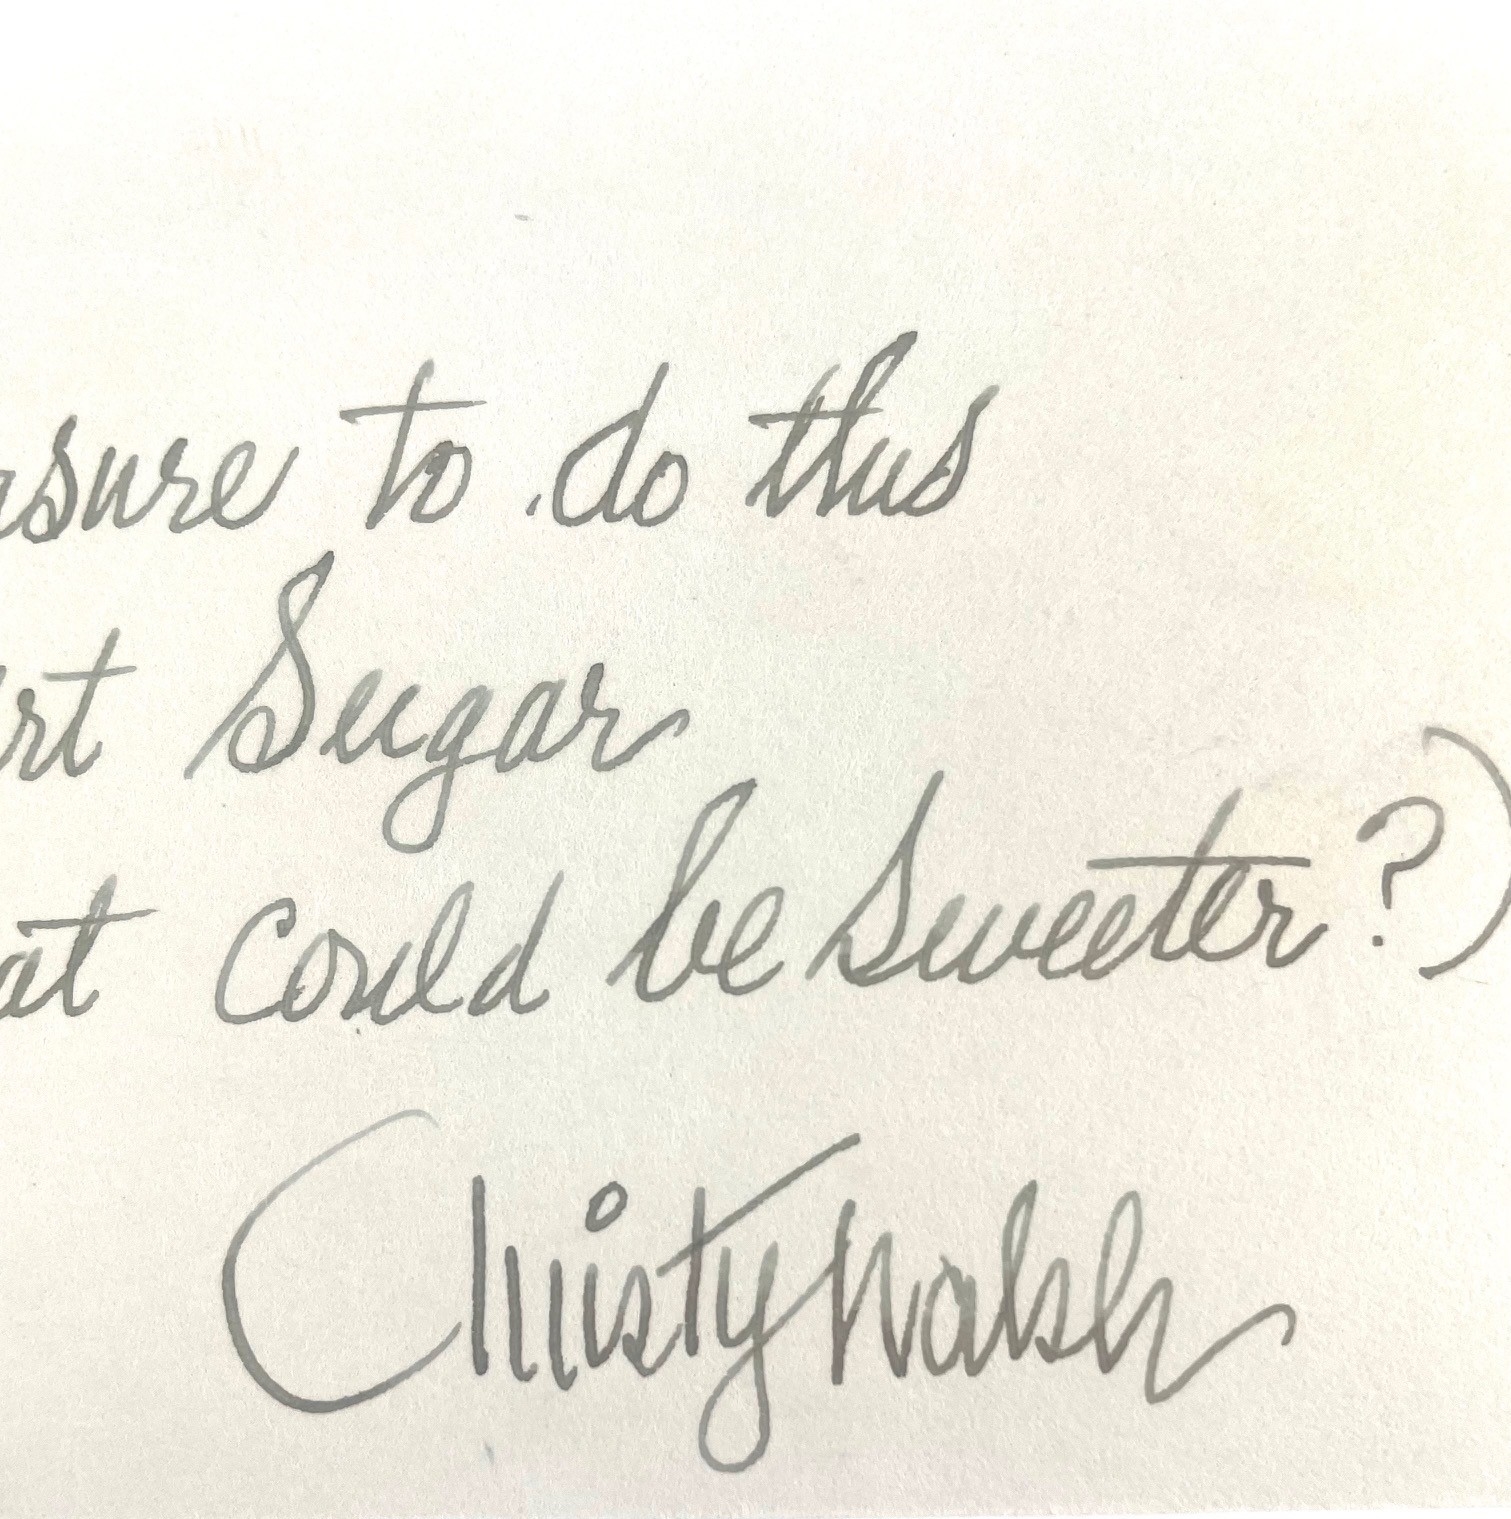 asure to do this
rt Sugar
at could be sweeter?)
Christy Walsh